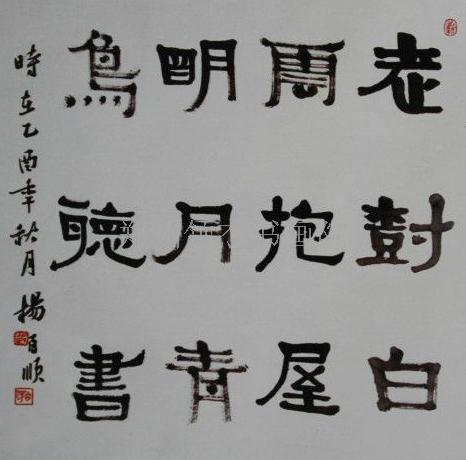 老對白
周抱屋
明月青
鳥聽書
時在乙酉年秋月楊百順